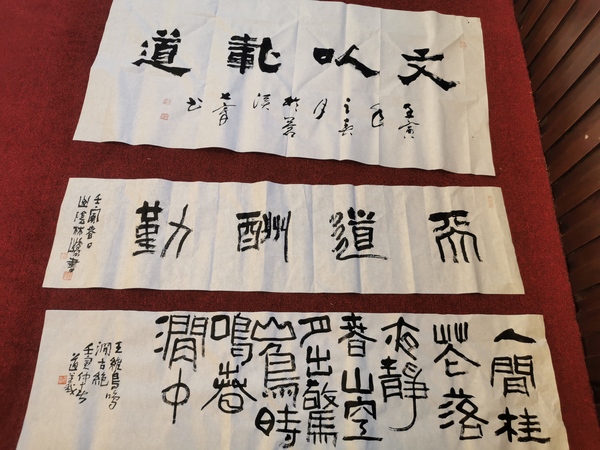 文以載道
壬寅
年
之春
月
書
天道酬勤
壬寅春日
人閒桂
花落
夜靜
春山空
月出驚
山鳥時
鳴春
澗中
王維鳥鳴
澗古絕
壬寅仲春